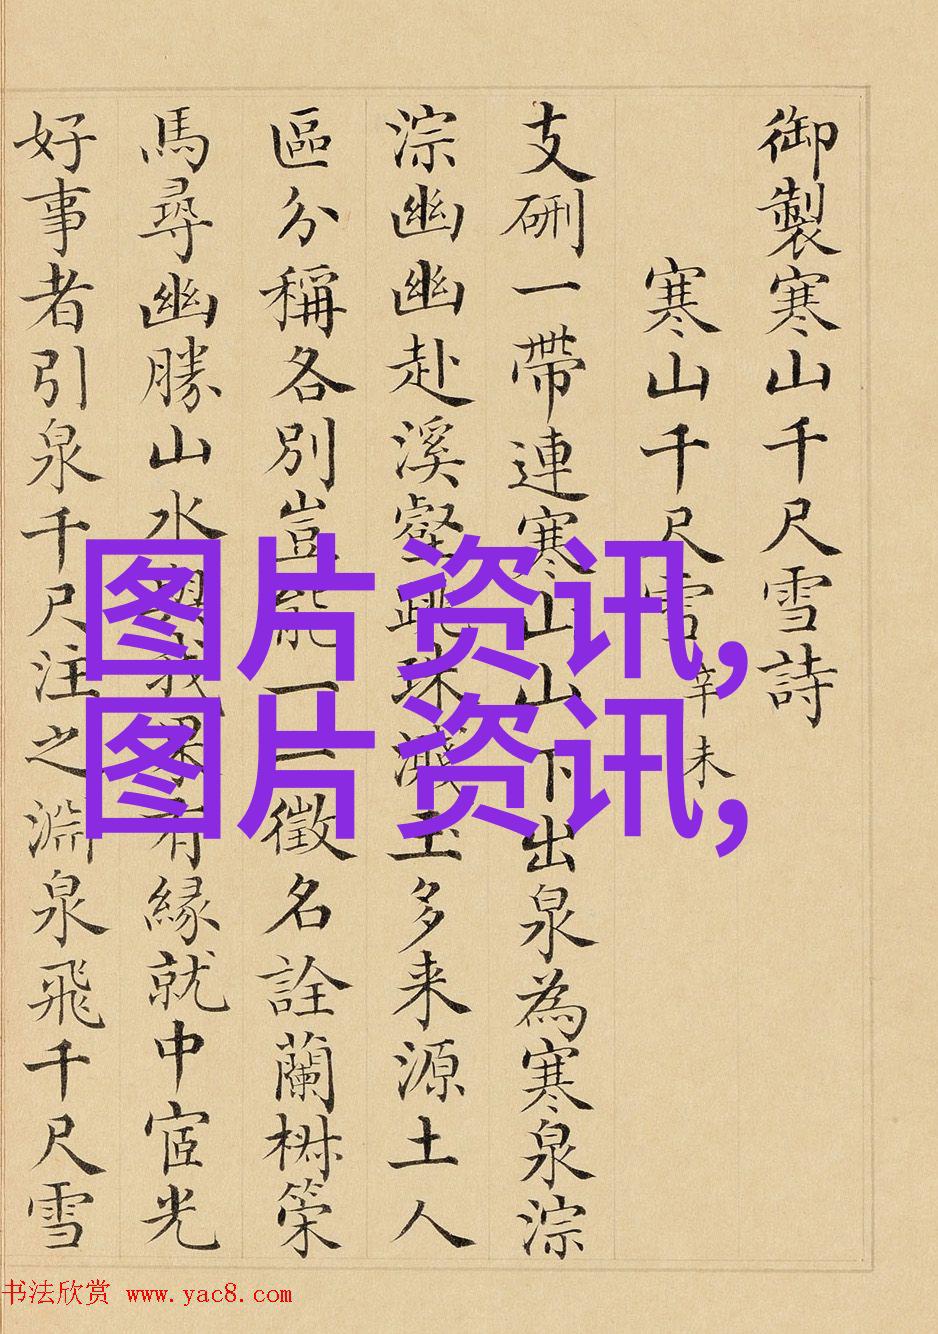 御製寒山千尺雪詩
寒山千尺雪 辛未
支硎一帶連寒山山下出泉為寒泉淙
淙幽幽赴溪壑跳珠濺玉多来源土人
區分稱各別豈能一一徵名詮蘭椒策
馬尋幽勝山水與我果有緣就中宧光
好事者引泉千尺注之淵泉飛千尺雪
图片资讯,
图片资讯,
书法欣赏 www.yac8.com